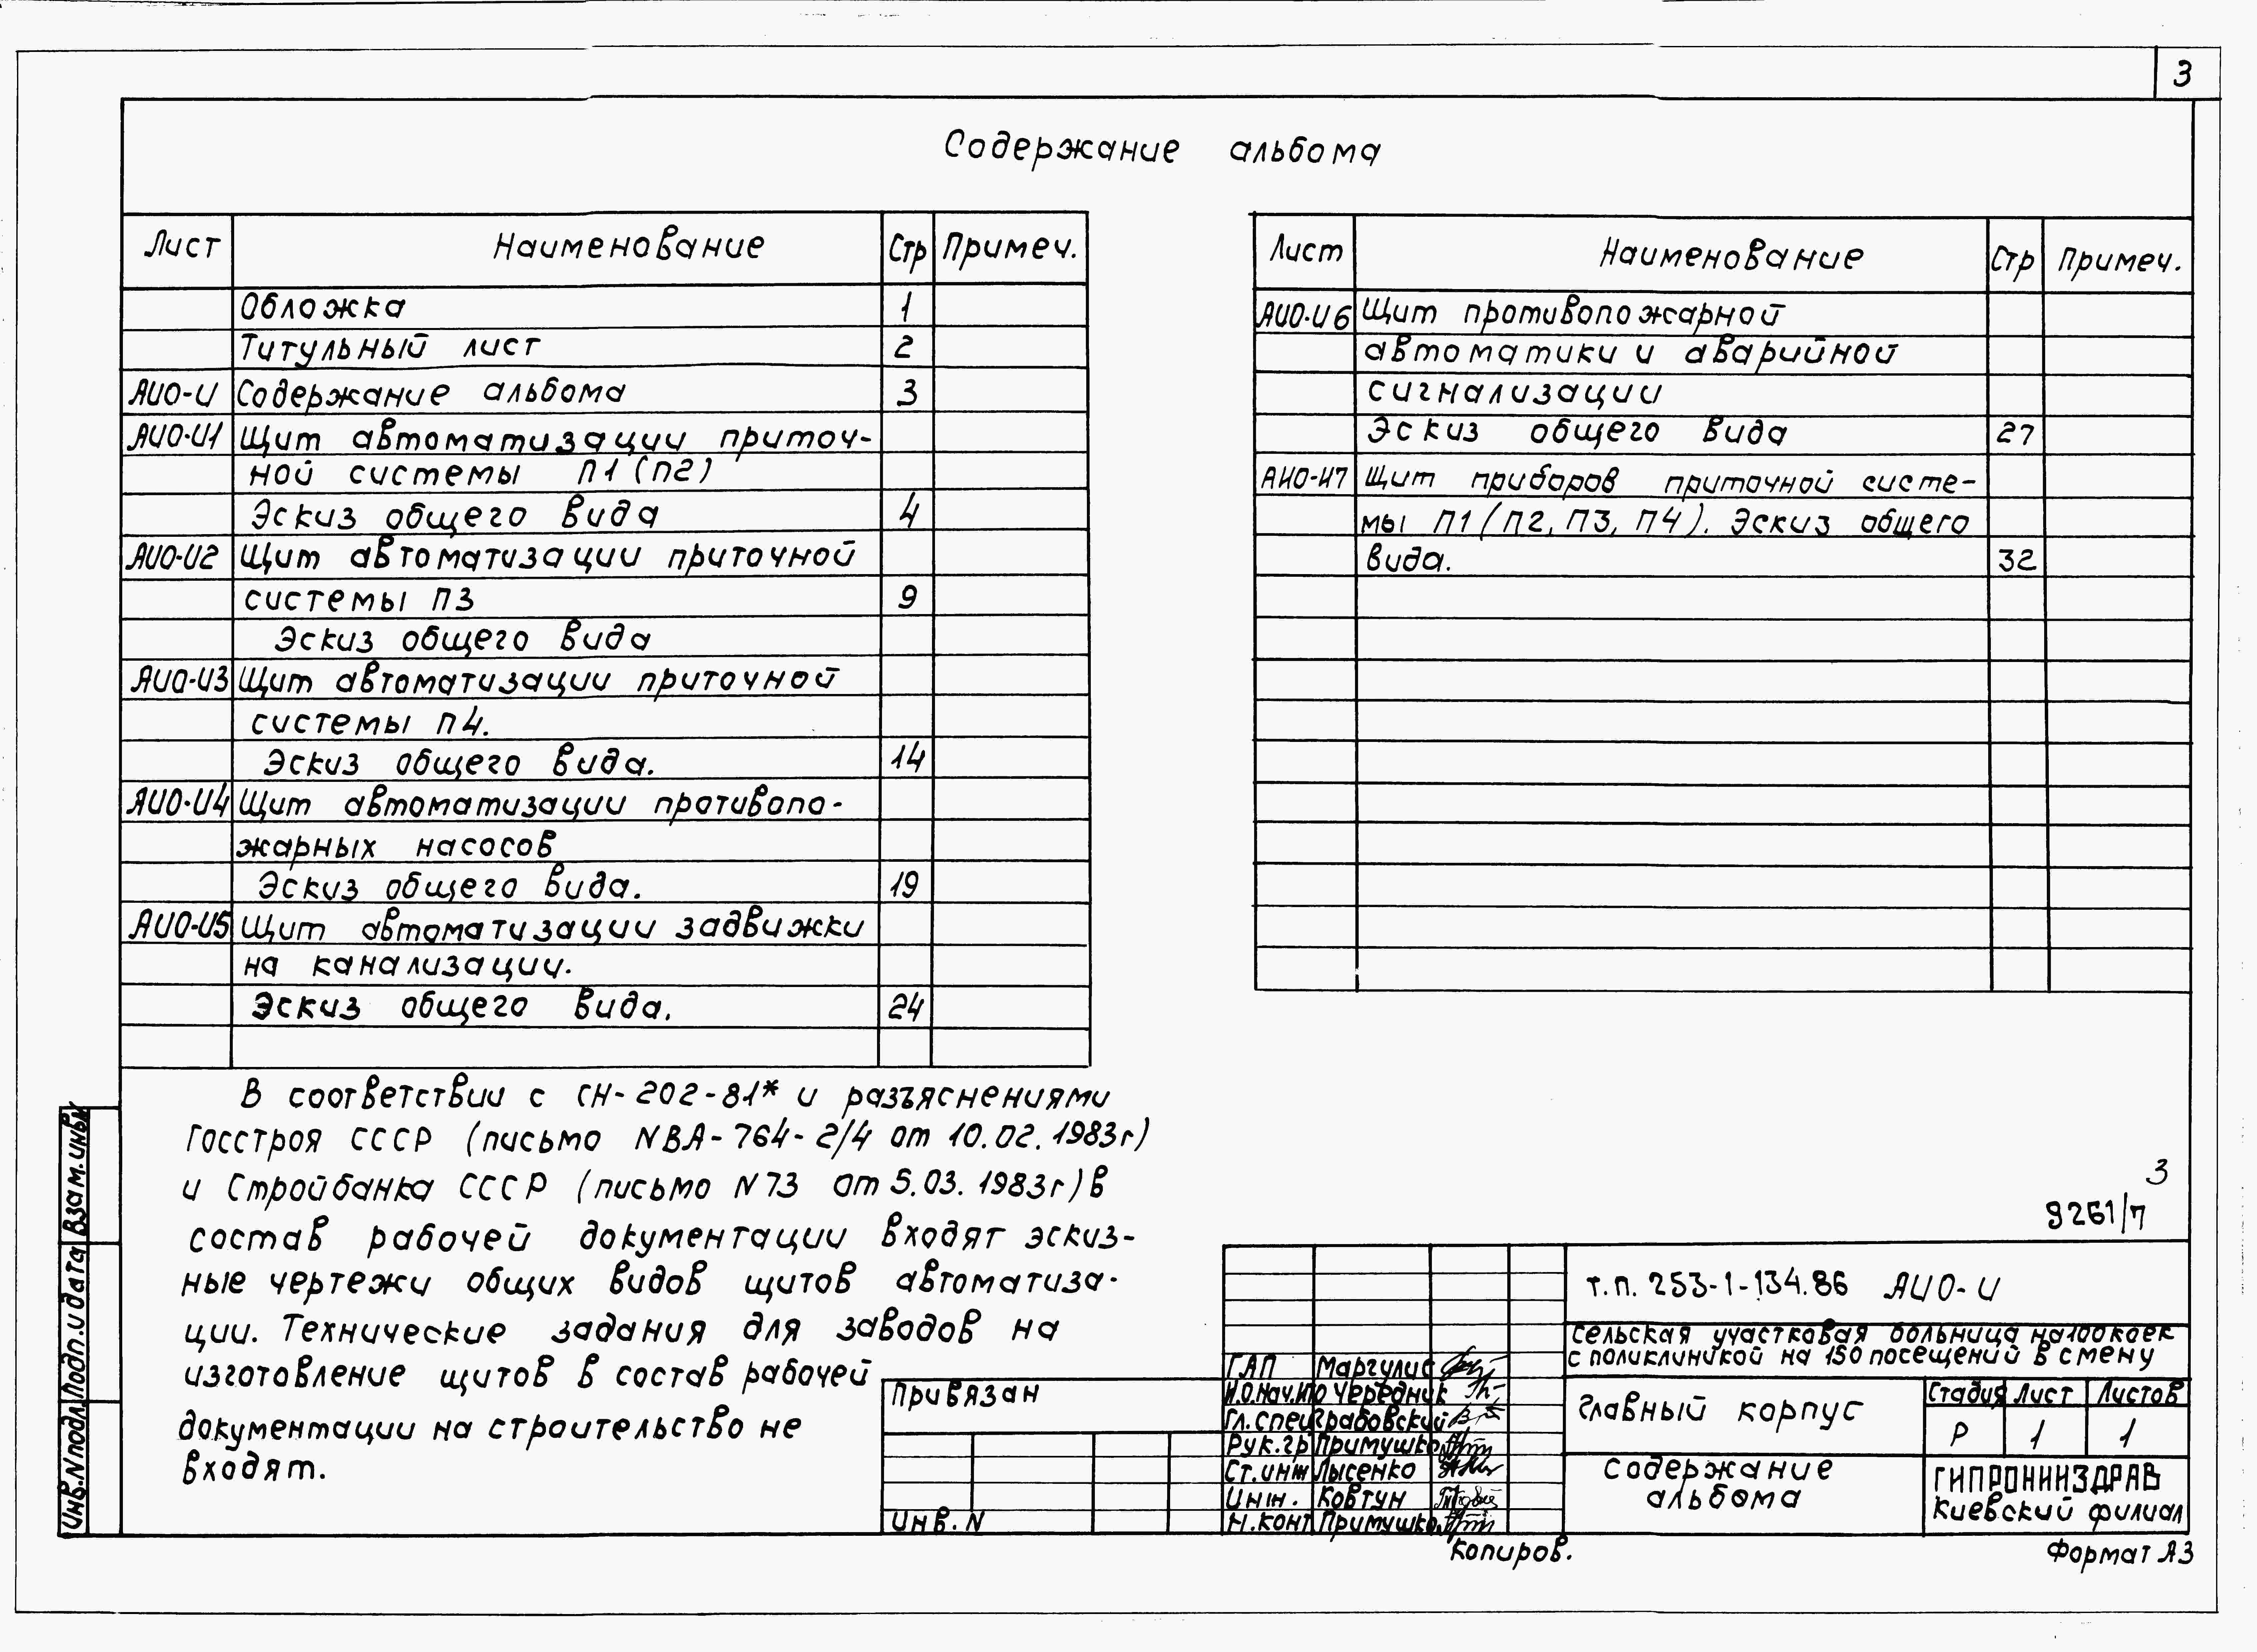 3
Содержание альбома
Лист Наименование Стр Примеч.
Обложка 1
Титульный лист 2
АИО-И Содержание альбома 3
АИО-И1 Щит автоматизации приточ-
ной системы П1 (П2)
Эскиз общего вида 4
АИО-И2 Щит автоматизации приточной
системы П3 9
Эскиз общего вида
АИО-И3 Щит автоматизации приточной
системы П4.
Эскиз общего вида. 14
АИО-И4 Щит автоматизации противопо-
жарных насосов
Эскиз общего вида. 19
АИО-И5 Щит автоматизации задвижки
на канализации.
Эскиз общего вида. 24
Лист Наименование Стр Примеч.
АИО-И6 Щит противопожарной
автоматики и аварийной
сигнализации
Эскиз общего вида 27
АИО-И7 Щит приборов приточной систе-
мы П1 (П2, П3, П4). Эскиз общего
вида. 32
В соответствии с СН-202-81* и разъяснениями
Госстроя СССР (письмо NВА-764-2/4 от 10.02.1983г)
и Стройбанка СССР (письмо N73 от 5.03.1983г) в
состав рабочей документации входят эскиз-
ные чертежи общих видов щитов автоматиза-
ции. Технические задания для заводов на
изготовление щитов в состав рабочей
документации на строительство не
входят.
Взам.инвN
Подп.и дата
Инв.Nподл.
Привязан
Инв.N
3
9261/7
т.п. 253-1-134.86 АИО-И
сельская участковая больница на 100 коек
с поликлиникой на 150 посещений в смену
ГАП Маргулис
И.О.Нач.ИО Чередник
Гл.спец Грабовский
Рук.гр Примушко
Ст.инж Лысенко
Инж. Ковтун
Н.конт Примушко
главный корпус
Стадия Лист Листов
Р 1 1
содержание
альбома
ГИПРОНИИЗДРАВ
Киевский филиал
Копиров.
Формат А3